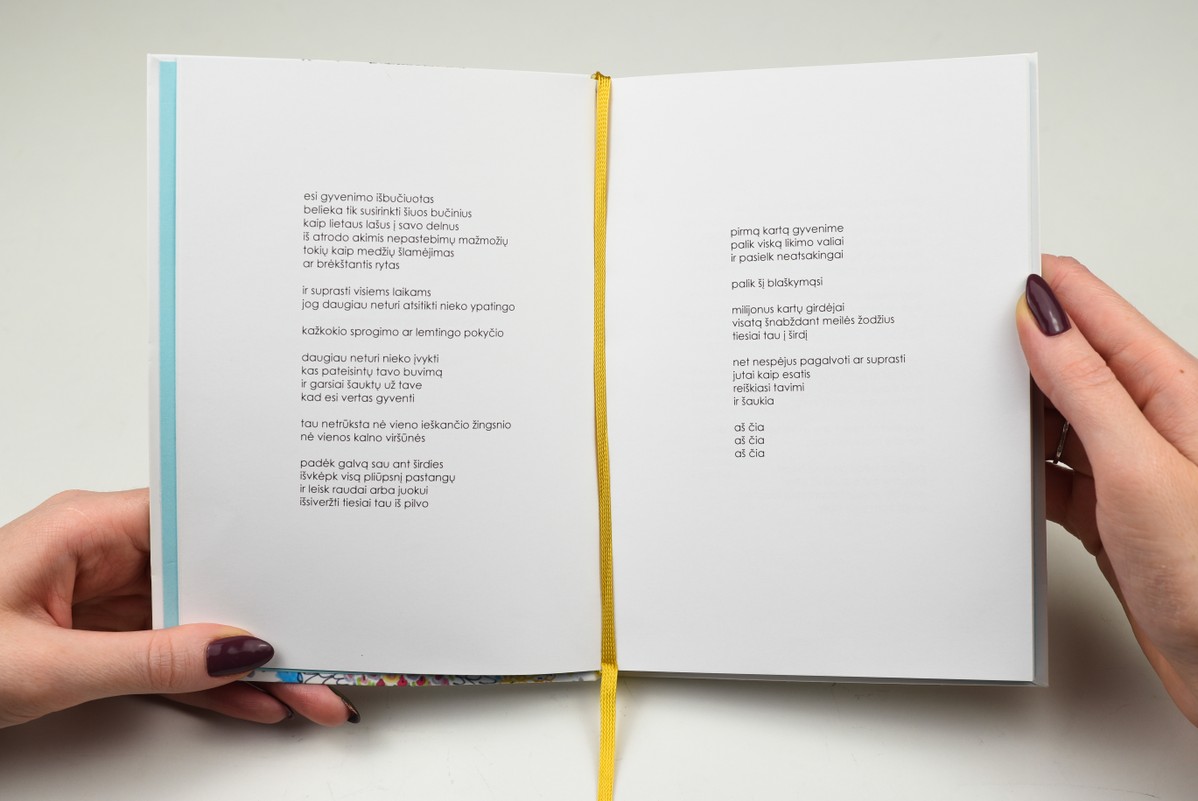 esi gyvenimo išbučiuotas
belieka tik susirinkti šiuos bučinius
kaip lietaus lašus į savo delnus
iš atrodo akimis nepastebimų mažmožių
tokių kaip medžių šlamėjimas
ar brėkštantis rytas
ir suprasti visiems laikams
jog daugiau neturi atsitikti nieko ypatingo
kažkokio sprogimo ar lemtingo pokyčio
daugiau neturi nieko įvykti
kas pateisintų tavo buvimą
ir garsiai šauktų už tave
kad esi vertas gyventi
tau netrūksta nė vieno ieškančio žingsnio
nė vienos kalno viršūnės
padėk galvą sau ant širdies
išvkėpk visą pliūpsnį pastangų
ir leisk raudai arba juokui
išsiveržti tiesiai tau iš pilvo
pirmą kartą gyvenime
palik viską likimo valiai
ir pasielk neatsakingai
palik šį blaškymąsi
milijonus kartų girdėjai
visatą šnabždant meilės žodžius
tiesiai tau į širdį
net nespėjus pagalvoti ar suprasti
jutai kaip esatis
reiškiasi tavimi
ir šaukia
aš čia
aš čia
aš čia